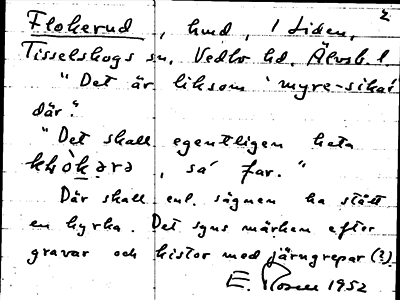 2
Flokerud, hmd, 1 Liden,
Tisselskogs sn, Vedbo hd, Älvsb. l
"Det är liksom 'myre-sika'
där."
"Det skall egentligen heta
, sa far."
Där skall enl. sägnen ha stått
en kyrka. Det syns märken efter
gravar och kistor med järngrepar (?).
E. Rosen 1952